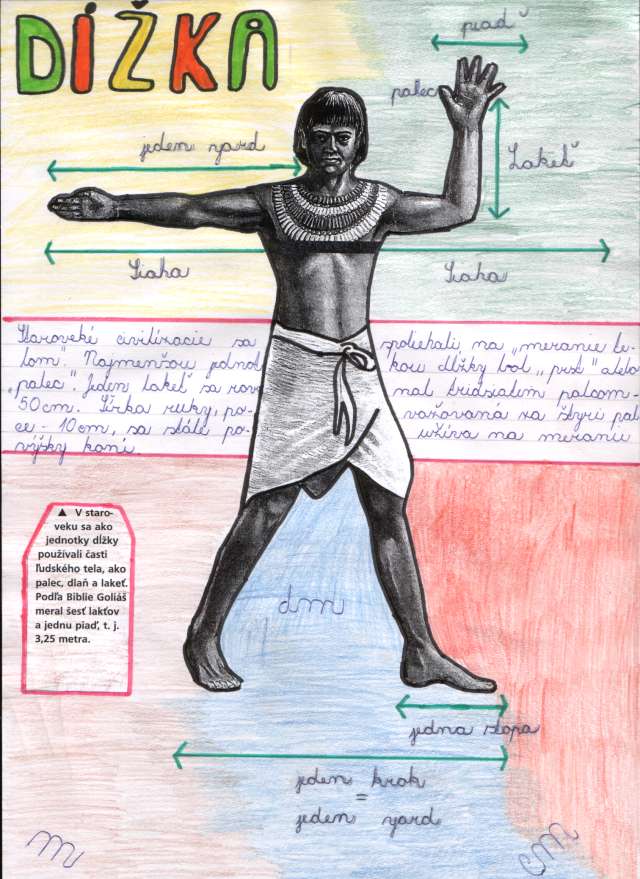 DÍŽKA
piaď
palec
jeden yard
Lakeť
Siaha Siaha
Staroveké civilizácie sa spoliehali na „meranie te-
lom". Najmenšou jednotkou dĺžky bol „prst" alebo
„palec". Jeden lakeť sa rovnal tridsiatim palcom-
50cm. Šírka ruky, považovaná za štyri pal-
ce - 10cm, sa stále používa na meranie
výšky koní.
▲ V staro-
veku sa ako
jednotky dĺžky
používali časti
ľudského tela, ako
palec, dlaň a lakeť.
Podľa Biblie Goliáš
meral šesť lakťov
a jednu piaď, t. j.
3,25 metra.
dm
jedna stopa
jeden krok
=
jeden yard
m
cm